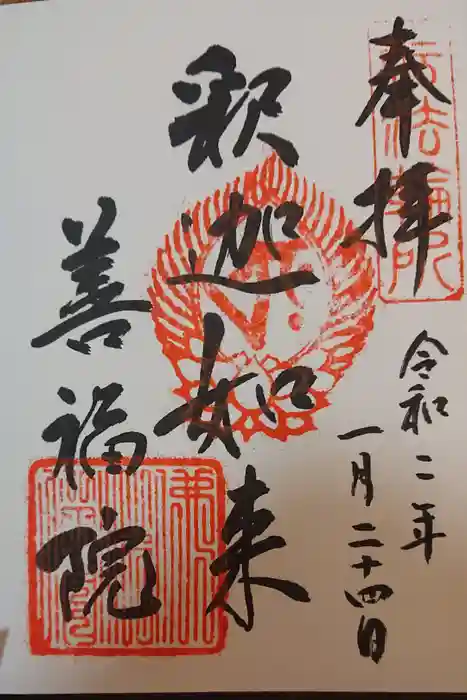 奉拝
令和二年
一月二十四日
釈迦如来
善福院